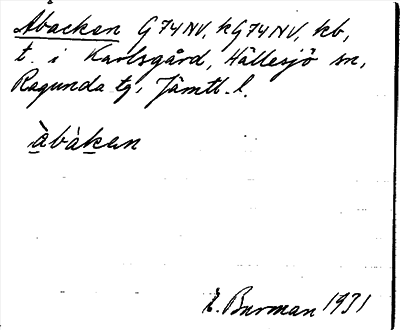 Åbacken G74NV, kG74NV, kb,
t. i Karlsgård, Hällesjö sn,
Ragunda tg, Jämtl. l.
å̀bàken
E. Burman 1931